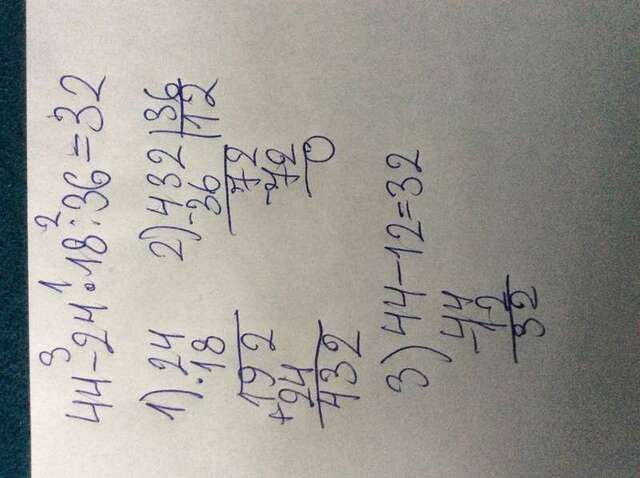 3 1 2
44-24·18:36=32
1) 24 2) 432 | 36
·18 -36 | 12
192 72
+24 -72
432 0
3) 44-12=32
-44
12
32